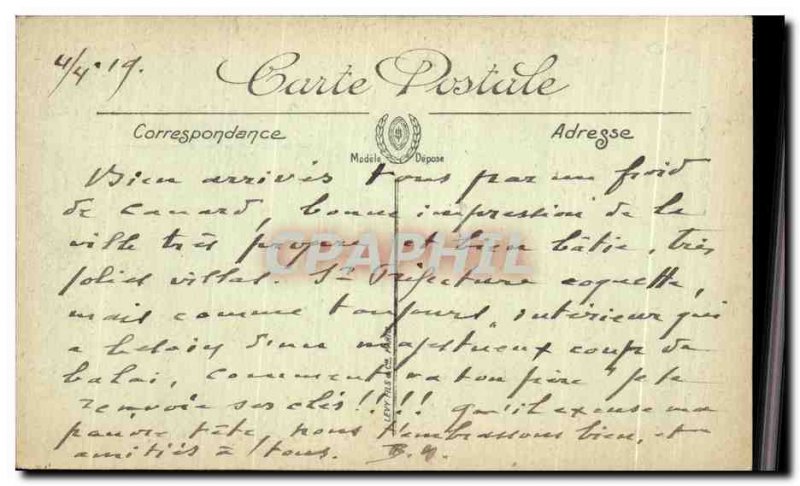 4/4.19.
Carte Postale
Correspondance
Adresse
Modèle Déposé
Bien arrivés tous par un froid
de canard, bonne impression de la
ville très propre et bien bâtie, très
jolies villas. Ss Préfecture coquette,
mais comme toujours, intérieur qui
a besoin d'un majestueux coup de
balai, comment va ton père je te
renvoie ses clés !!!! qu'il excuse ma
pauvre tête, nous t'embrassons bien, et
amitiés à tous.
CPAPHIL
LEVY FILS & Cie PARIS